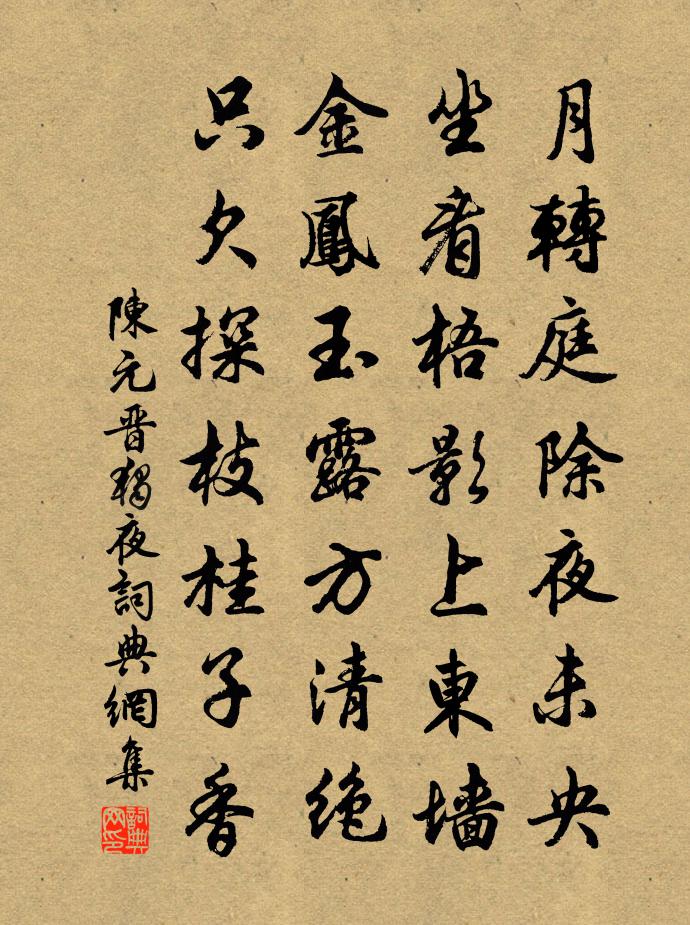 月轉庭除夜未央
坐看梧影上東墻
金鳳玉露方清絶
只欠探枝桂子香
陳元晋獨夜詞典網集
詞典网印